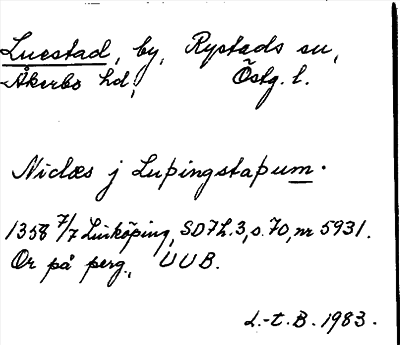 Luestad, by, Rystads sn,
Åkerbo hd, Östg. l.
Niclæs j Lupingstapum.
1358 7/7 Linköping, SD7h.3, s.70, nr 5931.
Or på perg., UUB.
L.-t. B. 1983.